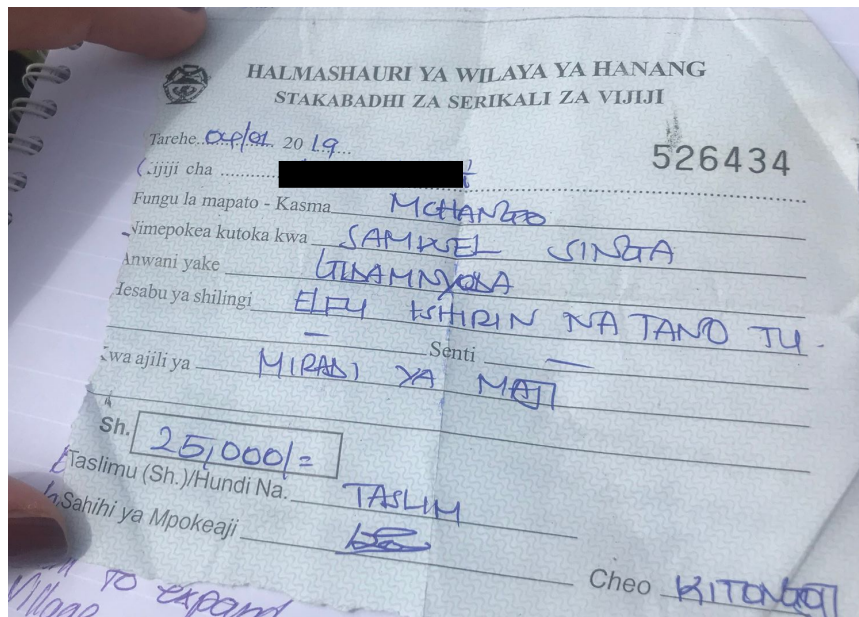 HALMASHAURI YA WILAYA YA HANANG
STAKABADHI ZA SERIKALI ZA VIJIJI
Tarehe 04/01 2019
526434
Kijiji cha
Fungu la mapato - Kasma MCHANGO
Nimepokea kutoka kwa SAMWEL SINGA
Anwani yake
Hesabu ya shilingi ELFU ISHIRIN NA TANO TU -
— Senti —
Kwa ajili ya MIRADI YA MAJI
Sh. 25,000/=
Taslimu (Sh.)/Hundi Na. TASLIM
Sahihi ya Mpokeaji
Cheo KITONGOJI
TO expand
Village